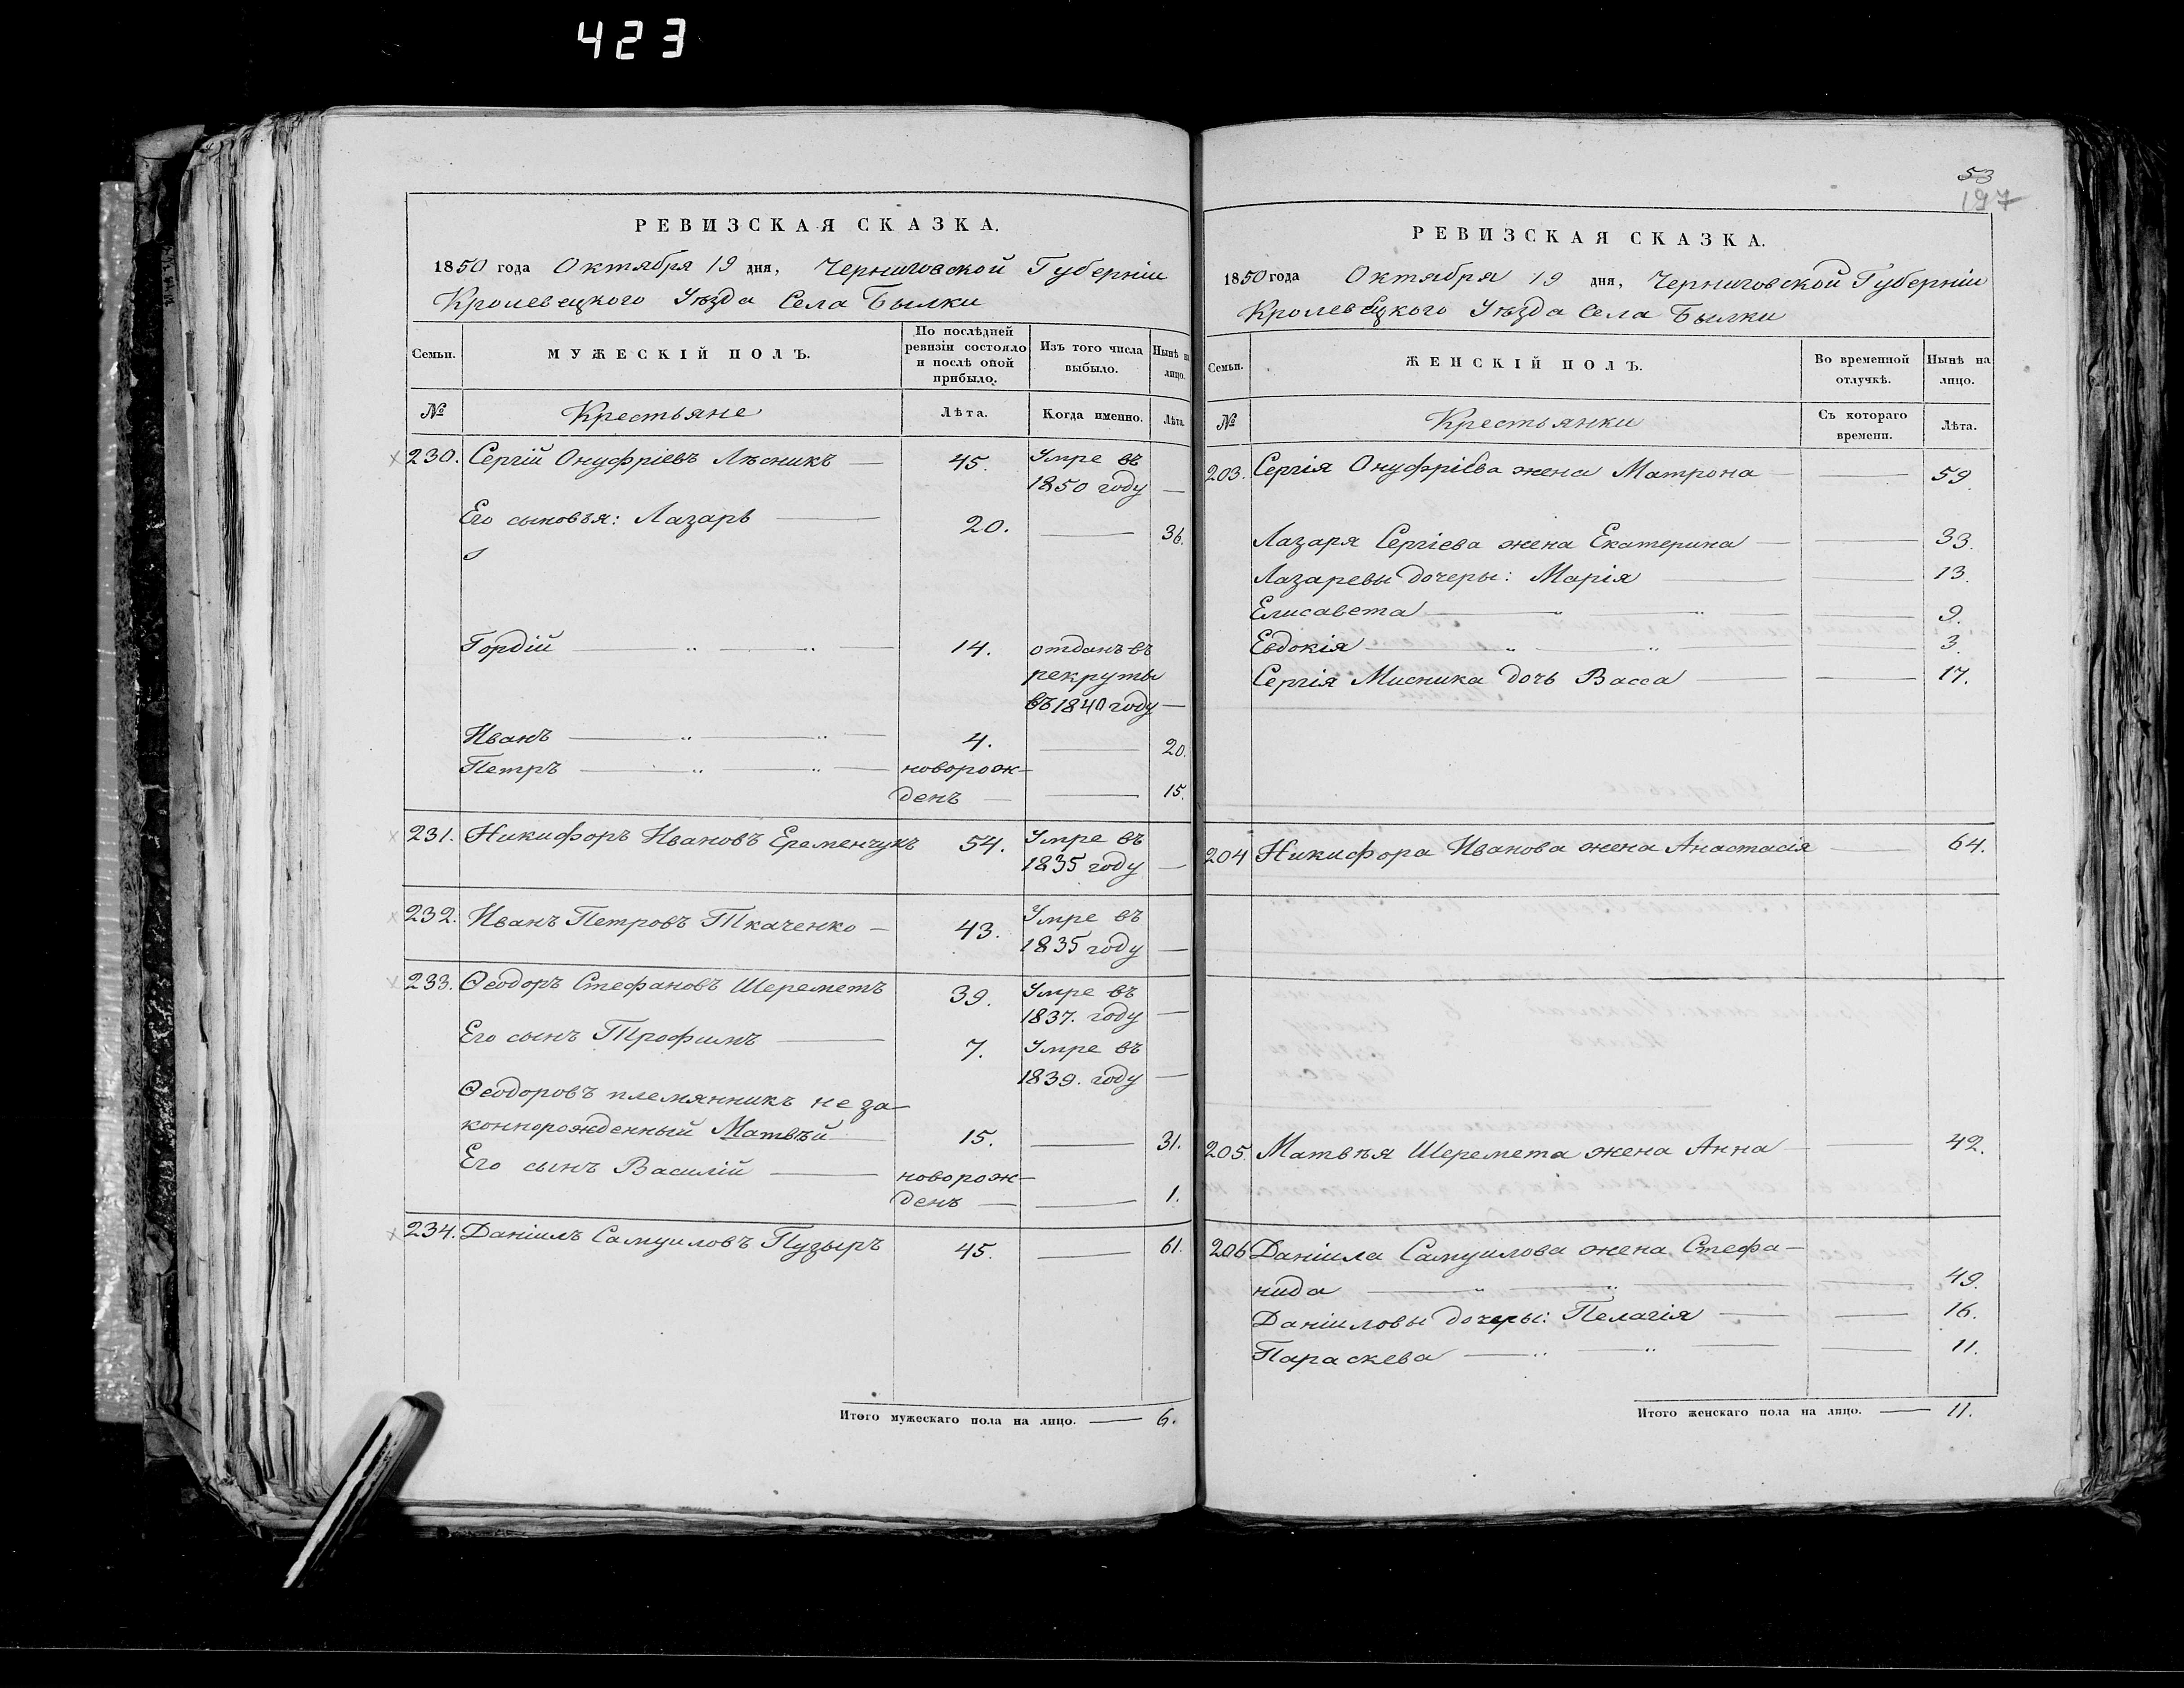 423
РЕВИЗСКАЯ СКАЗКА.
1850 года Октября 19 дня, Черниговской Губерніи
Кролевецкого Уѣзда Села Былки
Семьи.
МУЖЕСКІЙ ПОЛЪ.
По послѣдней
ревизіи состояло
и послѣ оной
прибыло.
Изъ того числа
выбыло.
Нынѣ на
лицо.
№
Крестьяне
Лѣта.
Когда именно.
Лѣта.
230. Сергій Онуфріевъ Лѣсникъ — 45. Умре въ
1850 году —
Его сыновья: Лазарь — 20. — 36.
Гордій — „ — „ — 14. отданъ въ
рекруты
въ 1840 году —
Иванъ — „ — „ — 4. — 20.
Петръ — „ — „ — новорож-
денъ — — 15.
231. Никифоръ Ивановъ Еременчукъ 54. Умре въ
1835 году —
232. Иванъ Петровъ Ткаченко — 43. Умре въ
1835 году —
233. Ѳеодоръ Стефановъ Шереметъ 39. Умре въ
1837. году —
Его сынъ Трофимъ — 7. Умре въ
1839. году —
Ѳеодоровъ племянникъ не за-
коннорожденный Матвѣй — 15. — 31.
Его сынъ Василій — новорож-
денъ — — 1.
234. Даніилъ Самуиловъ Пузыръ 45. — 61.
Итого мужескаго пола на лицо. — 6.
53
197
РЕВИЗСКАЯ СКАЗКА.
1850 года Октября 19 дня, Черниговской Губерніи
Кролевецкого Уѣзда Села Былки
Семьи.
ЖЕНСКІЙ ПОЛЪ.
Во временной
отлучкѣ.
Нынѣ на
лицо.
№
Крестьянки
Съ котораго
времени.
Лѣта.
203. Сергія Онуфріева жена Матрона — — 59.
Лазаря Сергіева жена Екатерина — — 33.
Лазаревы дочеры: Марія — — 13.
Елисавета — „ — „ — — 9.
Евдокія — „ — „ — — 3.
Сергія Мисника дочь Васса — — 17.
204 Никифора Иванова жена Анастасія — 64.
205. Матвѣя Шеремета жена Анна — — 42.
206 Даніила Самуилова жена Стефа-
нида — „ — „ — — 49.
Даніиловы дочеры: Пелагія — — 16.
Параскева — „ — „ — — 11.
Итого женскаго пола на лицо. — 11.